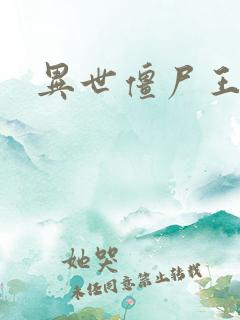 異世僵尸王
她哭
未经同意禁止转载